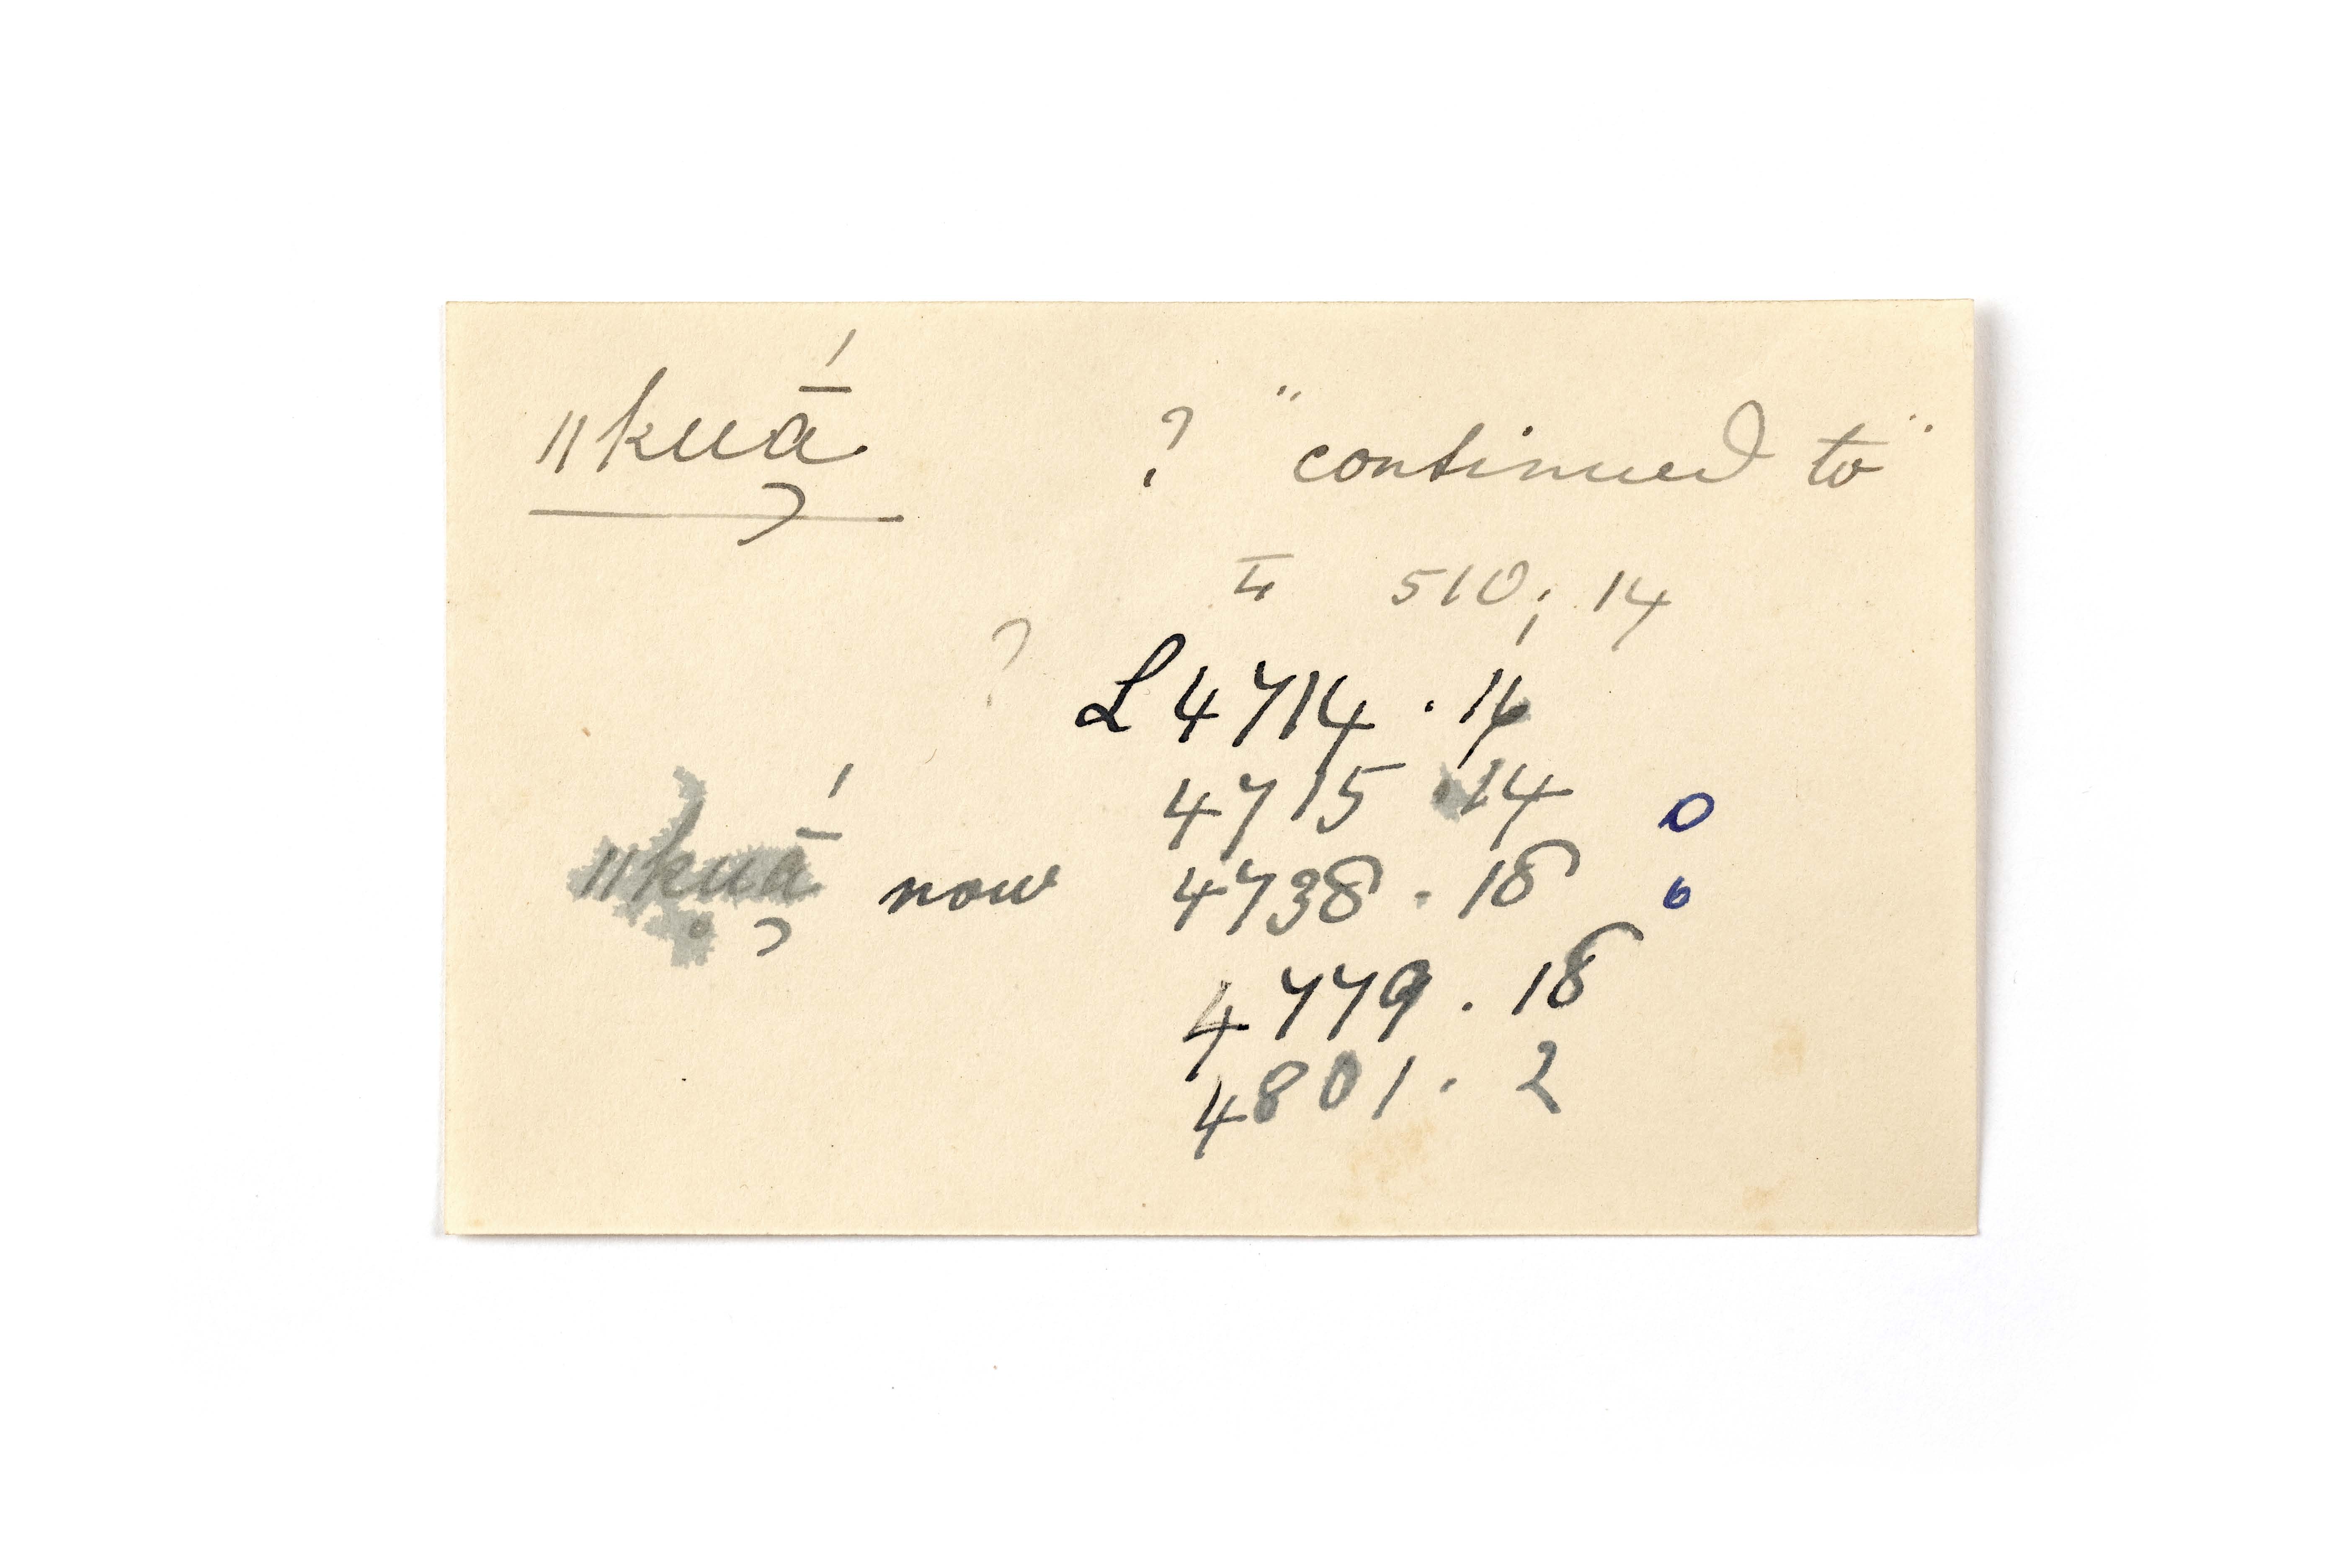 ǁkuā̡́ ? "continued to"
II 510; 14
? L 4714 . 16
4715 . 14 0
ǁkuā̡́ now 4738 . 18 6
4779 . 18
4801 . 2